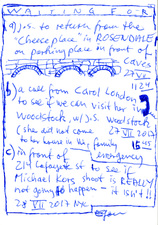 WAITING FOR
a) J.S. to return from the
"Cheese place" in ROSENDALE
on parking place in front of
Caves
27 VII
1124
b) a call from Carol London
to see if we can visit her in
Woodstock, w/ J.S. Woodstock
(she did not come 27 VII 2017
to her house in the family 1545
emergency
c) in front of
219 Lafayette St to see if
Michael Kors shoot is REALLY
not going to happen – it isn't!!
28 VII 2017 NYC